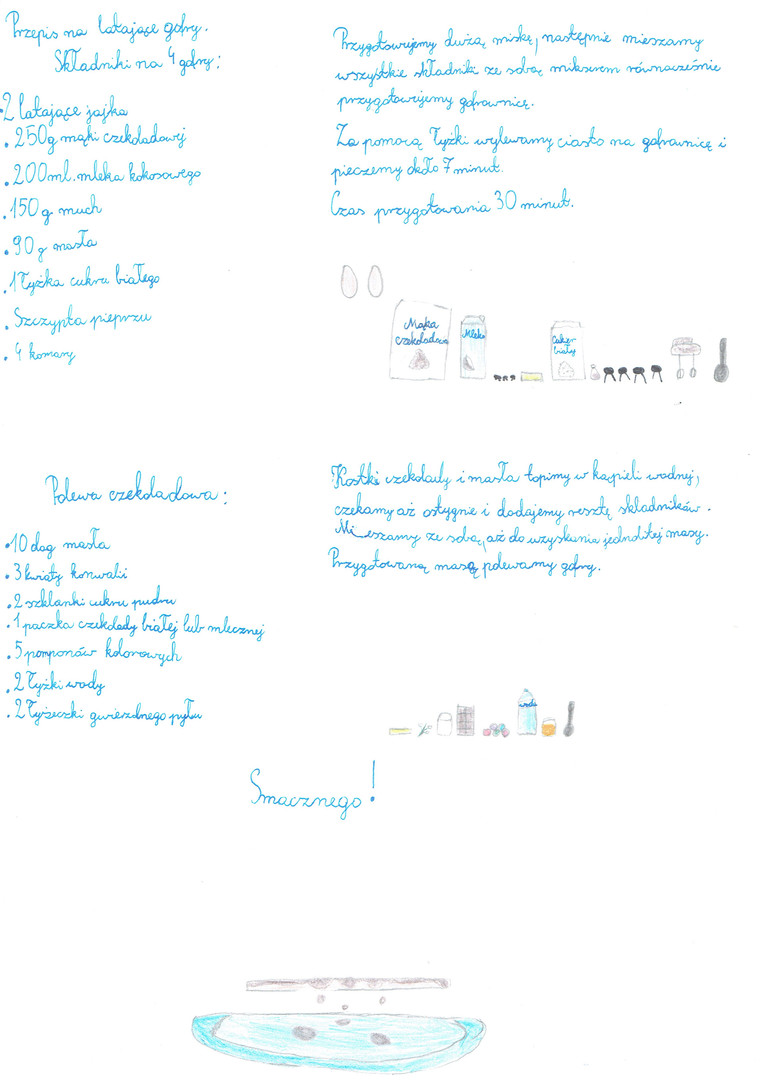 Przepis na latające gofry.
Składniki na 4 gofry:
• 2 latające jajka
• 250g mąki czekoladowej
• 200ml. mleka kokosowego
• 150g much
• 90g masła
• 1 łyżka cukru białego
• Szczypta pieprzu
• 4 komary
Przygotowujemy dużą miskę, następnie mieszamy
wszystkie składniki ze sobą mikserem równocześnie
przygotowujemy gofrownicę.
Za pomocą łyżki wylewamy ciasto na gofrownicę i
pieczemy około 7 minut.
Czas przygotowania 30 minut.
Mąka
czekoladowa
Mleko
Cukier
biały
Polewa czekoladowa:
• 10 dag masła
• 3 kwiaty konwalii
• 2 szklanki cukru pudru
• 1 paczka czekolady białej lub mlecznej
• 5 pomponów kolorowych
• 2 łyżki wody
• 2 łyżeczki gwiezdnego pyłu
Kostki czekolady i masła topimy w kąpieli wodnej,
czekamy aż ostygnie i dodajemy resztę składników.
Mieszamy ze sobą, aż do uzyskania jednolitej masy.
Przygotowaną masą polewamy gofry.
woda
Smacznego!